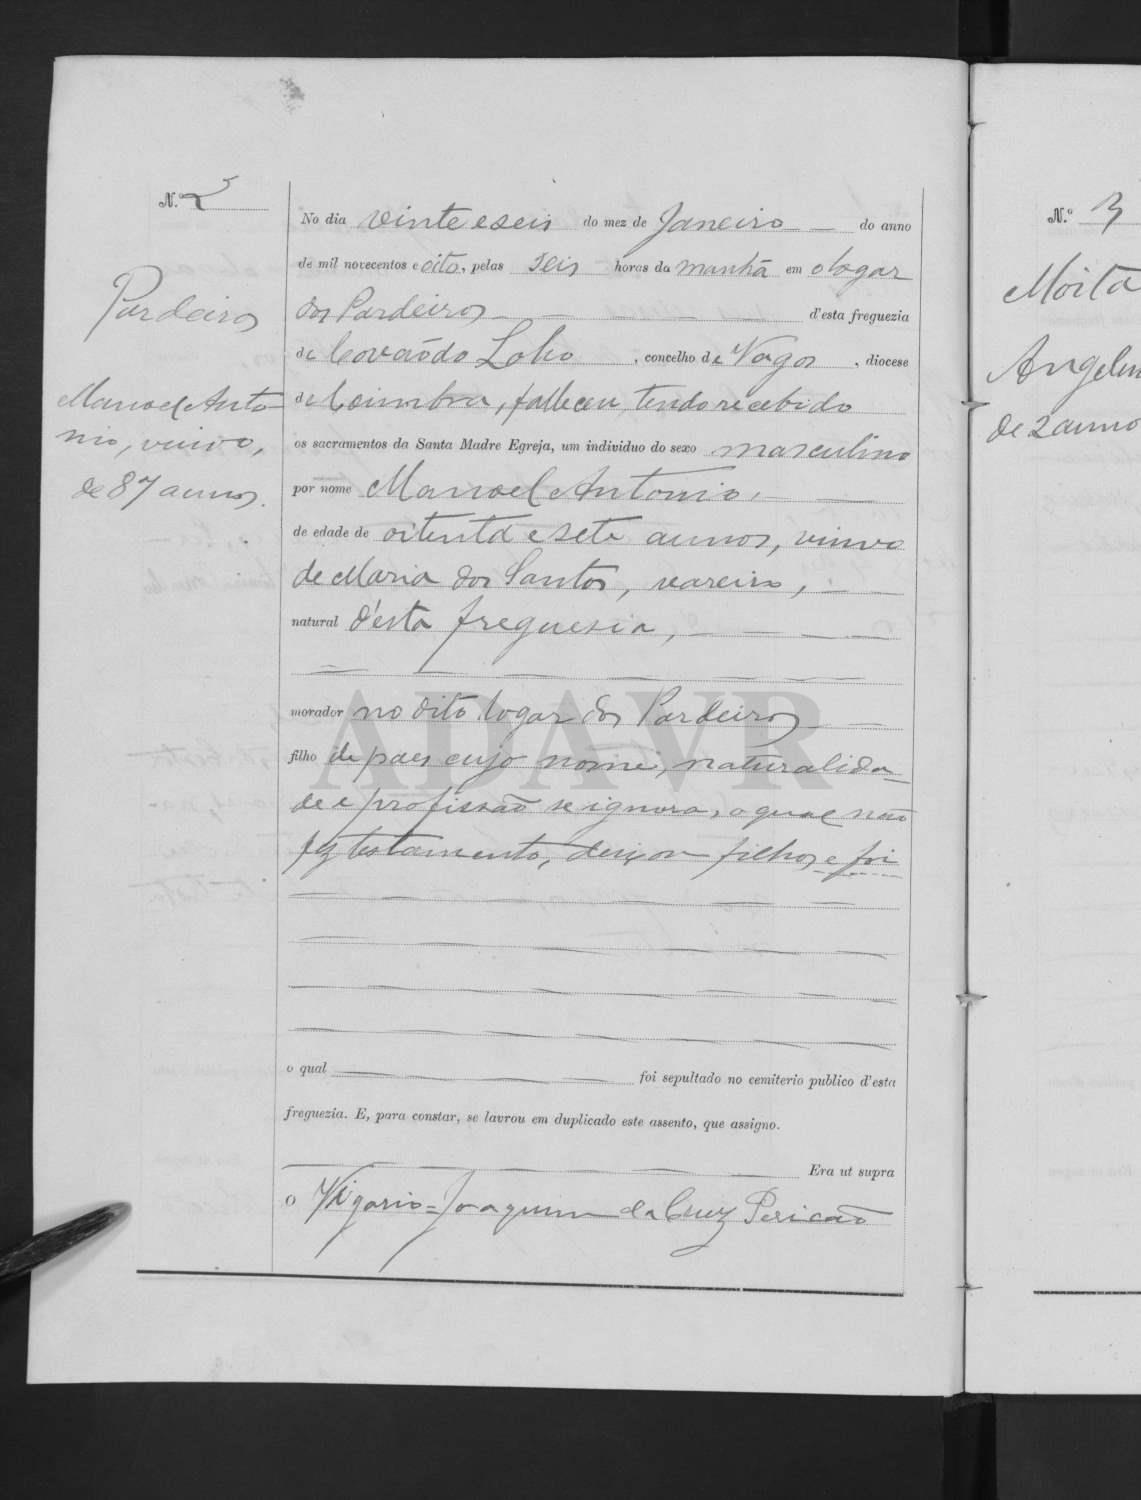 N.º 2
Pardeiros
Manoel Anto-
nio, viuvo,
de 87 annos.
No dia vinte e seis do mez de Janeiro do anno
de mil novecentos e oito, pelas seis horas da manhã em o logar
dos Pardeiros d'esta freguezia
de Covão do Lobo, concelho de Vagos, diocese
de Coimbra, falleceu, tendo recebido
os sacramentos da Santa Madre Egreja, um individuo do sexo masculino
por nome Manoel Antonio,
de edade de oitenta e sete annos, viuvo
de Maria dos Santos, vareiro,
natural d'esta freguesia,
morador no dito logar dos Pardeiros
filho de paes cujo nome, naturalida-
de e profissão se ignora, o qual não
fez testamento, deixou filhos e foi
o qual foi sepultado no cemiterio publico d'esta
freguezia. E, para constar, se lavrou em duplicado este assento, que assigno.
Era ut supra
O Vigario = Joaquim da Cruz Pericão
ADAVR
N.º 3
Moita
Angelin
de 2 anno